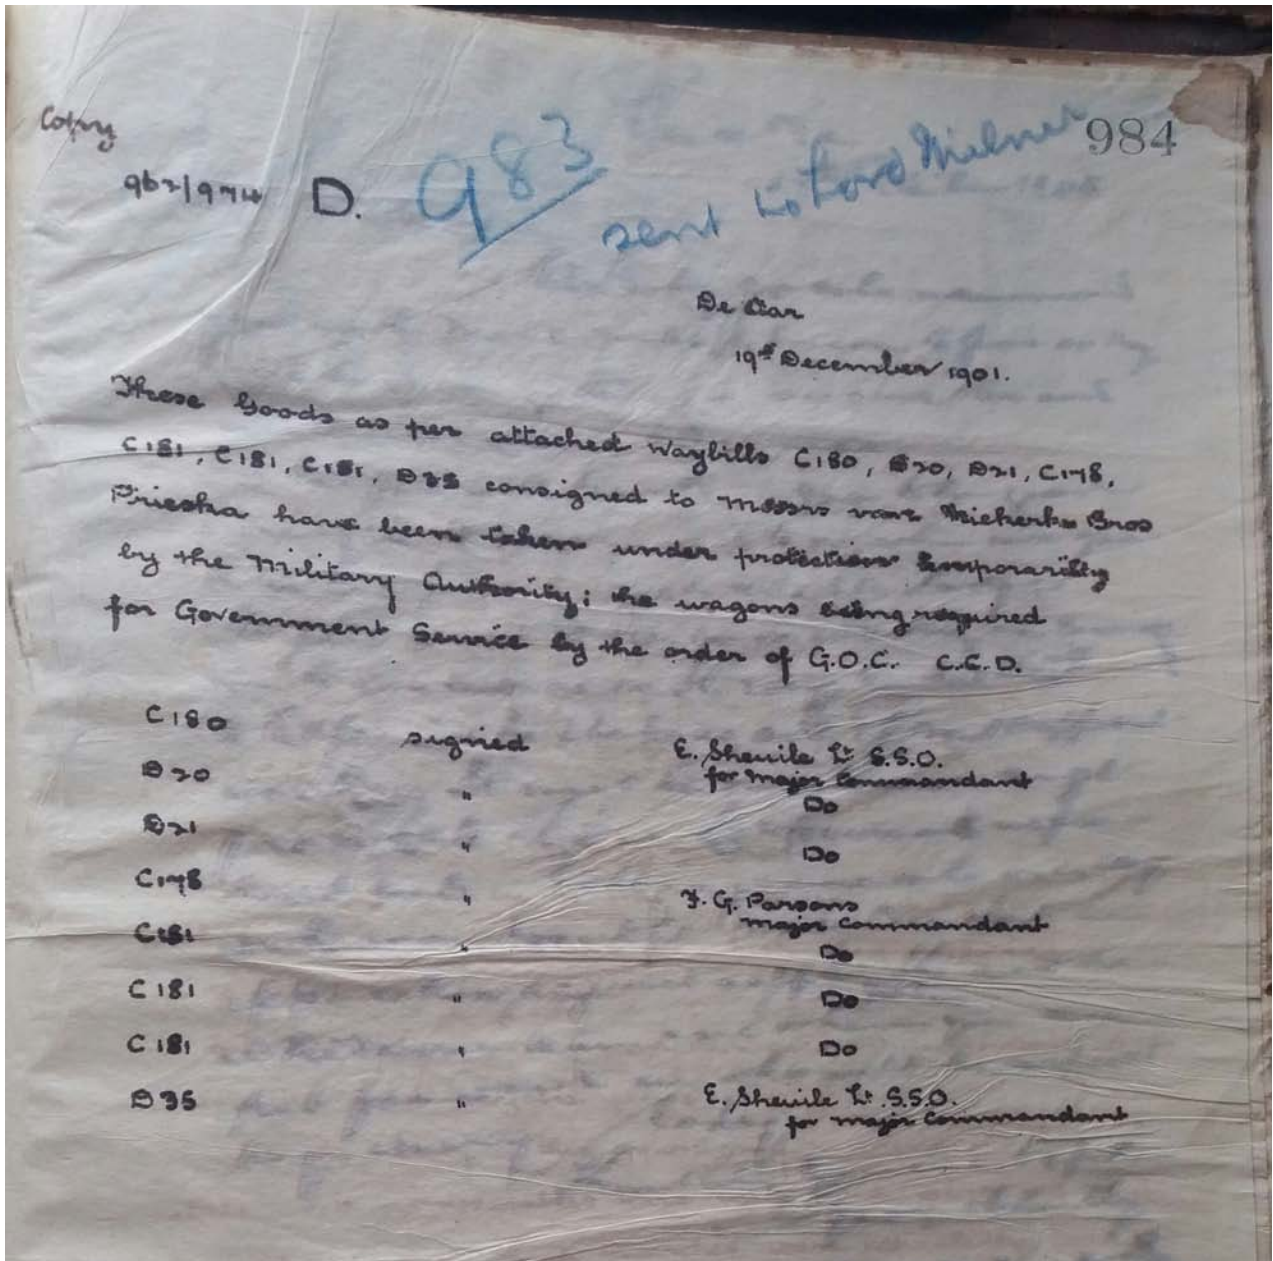 Copy
984
962/974 D. 983
sent to Lord Milner
De Aar
19th December 1901.
These Goods as per attached Waybills C180, D20, D21, C178,
C181, C181, C181, D35 consigned to Messrs van Niekerk Bros
Prieska have been taken under protection temporarily
by the Military Authority; the wagons being required
for Government Service by the order of G.O.C. C.C.D.
C180 signed E. Lt S.S.O.
for Major Commandant
D20 " Do
D21 " Do
C178 " F. G. Parsons
Major Commandant
C181 " Do
C181 " Do
C181 " Do
D35 " E. Lt S.S.O.
for Major Commandant